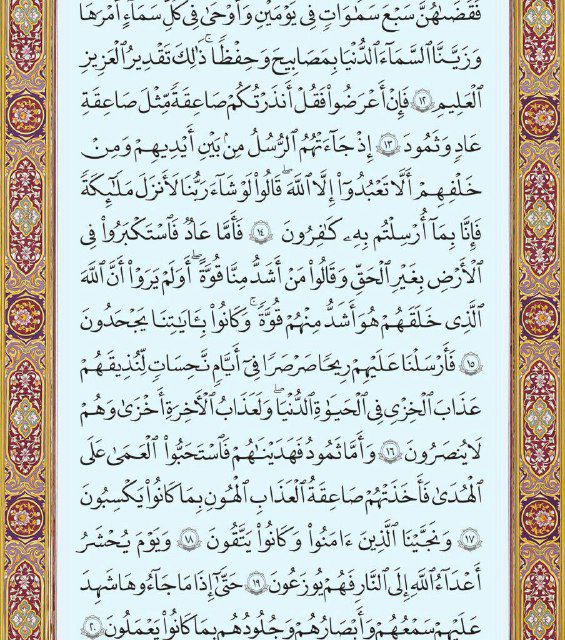 فَقَضَىٰهُنَّ سَبْعَ سَمَٰوَاتٍ فِى يَوْمَيْنِ وَأَوْحَىٰ فِى كُلِّ سَمَآءٍ أَمْرَهَا
وَزَيَّنَّا ٱلسَّمَآءَ ٱلدُّنْيَا بِمَصَٰبِيحَ وَحِفْظًا ۚ ذَٰلِكَ تَقْدِيرُ ٱلْعَزِيزِ
ٱلْعَلِيمِ ١٢ فَإِنْ أَعْرَضُوا۟ فَقُلْ أَنذَرْتُكُمْ صَٰعِقَةً مِّثْلَ صَٰعِقَةِ
عَادٍ وَثَمُودَ ١٣ إِذْ جَآءَتْهُمُ ٱلرُّسُلُ مِنۢ بَيْنِ أَيْدِيهِمْ وَمِنْ
خَلْفِهِمْ أَلَّا تَعْبُدُوٓا۟ إِلَّا ٱللَّهَ ۖ قَالُوا۟ لَوْ شَآءَ رَبُّنَا لَأَنزَلَ مَلَٰٓئِكَةً
فَإِنَّا بِمَآ أُرْسِلْتُم بِهِۦ كَٰفِرُونَ ١٤ فَأَمَّا عَادٌ فَٱسْتَكْبَرُوا۟ فِى
ٱلْأَرْضِ بِغَيْرِ ٱلْحَقِّ وَقَالُوا۟ مَنْ أَشَدُّ مِنَّا قُوَّةً ۖ أَوَلَمْ يَرَوْا۟ أَنَّ ٱللَّهَ
ٱلَّذِى خَلَقَهُمْ هُوَ أَشَدُّ مِنْهُمْ قُوَّةً ۖ وَكَانُوا۟ بِـَٔايَٰتِنَا يَجْحَدُونَ
١٥ فَأَرْسَلْنَا عَلَيْهِمْ رِيحًا صَرْصَرًا فِىٓ أَيَّامٍ نَّحِسَاتٍ لِّنُذِيقَهُمْ
عَذَابَ ٱلْخِزْىِ فِى ٱلْحَيَوٰةِ ٱلدُّنْيَا ۖ وَلَعَذَابُ ٱلْأَخِرَةِ أَخْزَىٰ وَهُمْ
لَا يُنصَرُونَ ١٦ وَأَمَّا ثَمُودُ فَهَدَيْنَٰهُمْ فَٱسْتَحَبُّوا۟ ٱلْعَمَىٰ عَلَى
ٱلْهُدَىٰ فَأَخَذَتْهُمْ صَٰعِقَةُ ٱلْعَذَابِ ٱلْهُونِ بِمَا كَانُوا۟ يَكْسِبُونَ
١٧ وَنَجَّيْنَا ٱلَّذِينَ ءَامَنُوا۟ وَكَانُوا۟ يَتَّقُونَ ١٨ وَيَوْمَ يُحْشَرُ
أَعْدَآءُ ٱللَّهِ إِلَى ٱلنَّارِ فَهُمْ يُوزَعُونَ ١٩ حَتَّىٰٓ إِذَا مَا جَآءُوهَا شَهِدَ
عَلَيْهِمْ سَمْعُهُمْ وَأَبْصَٰرُهُمْ وَجُلُودُهُم بِمَا كَانُوا۟ يَعْمَلُونَ ٢٠